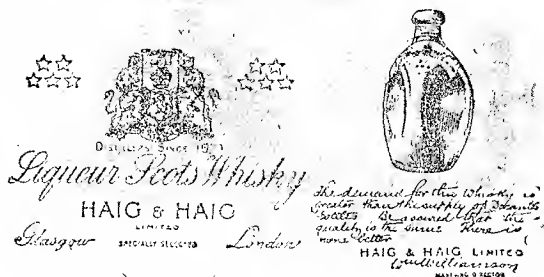 Distillers Since 1679
Liqueur Scots Whisky
HAIG & HAIG
LIMITED
Glasgow SPECIALLY SELECTED London
The demand for this Whisky is
greater than the supply of
bottles Be assured that the
quality is the same there is
none better
HAIG & HAIG LIMITED
Williamson
MANAGING DIRECTOR